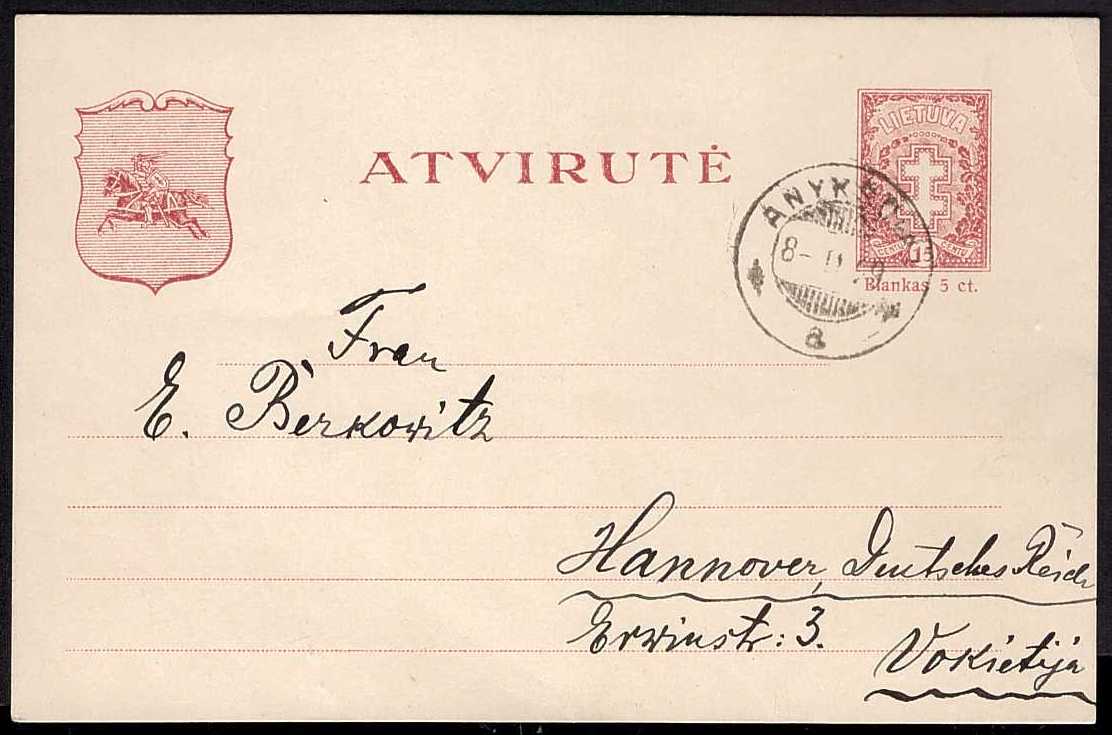 ATVIRUTĖ
LIETUVA
15
Blankas 5 ct.
8-
a
Frau
E. Berkowitz
Hannover, Deutsches Reich
Erwinstr: 3.
Vokietija